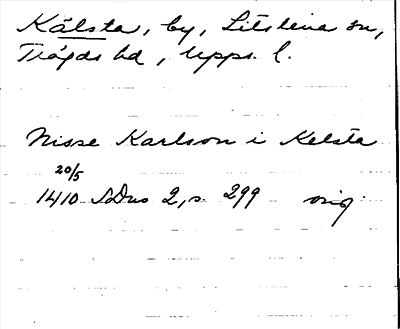 Kälsta, by, Litslena sn,
Trögds hd, Upps. l.
Nisse Karlson i Kelsta
20/5
1410 SDns 2, s. 299 orig.